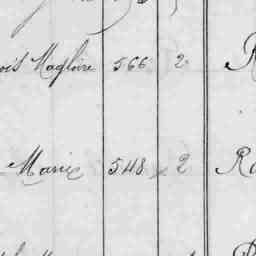 ois Magloire 566 2 R
Marie 548 2 Ro